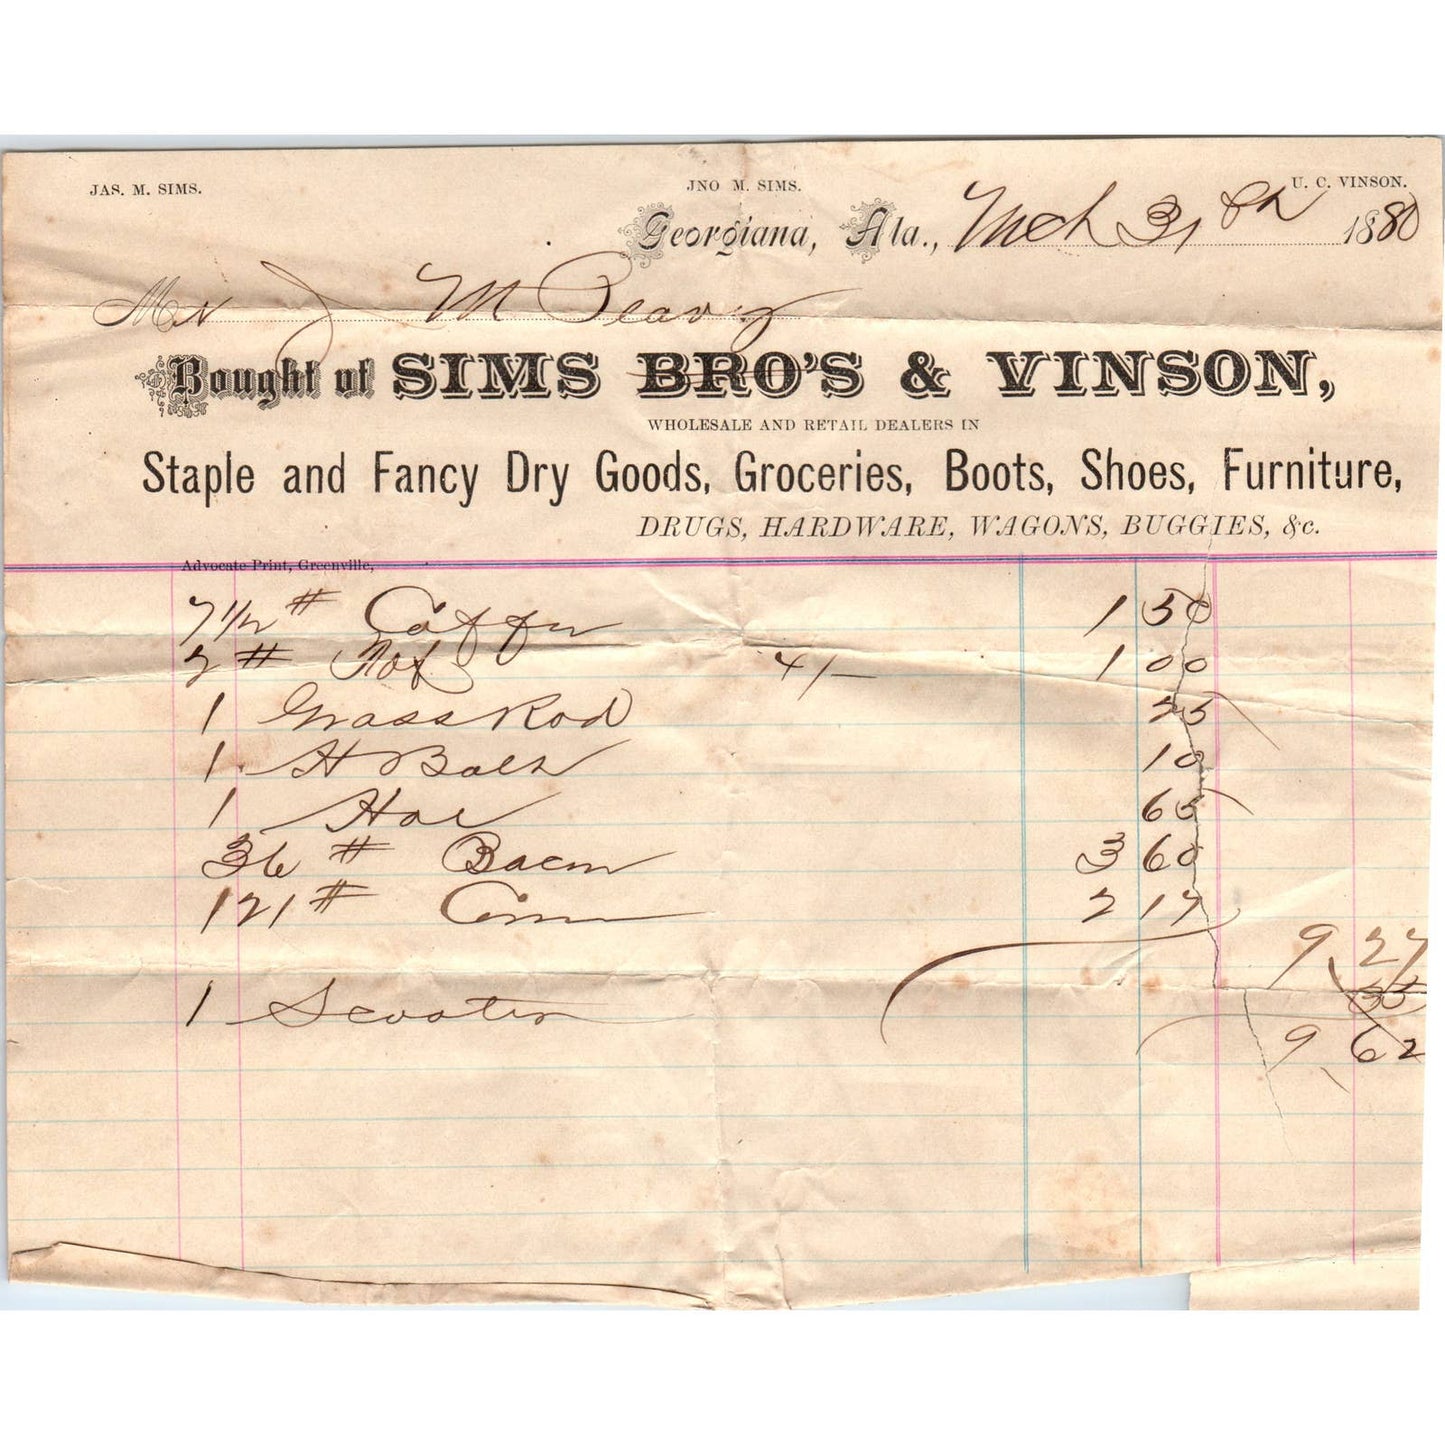 JAS. M. SIMS. JNO M. SIMS. U. C. VINSON.
Georgiana, Ala., Mch 31 1880
Mr J M Peavy
Bought of SIMS BRO'S & VINSON,
WHOLESALE AND RETAIL DEALERS IN
Staple and Fancy Dry Goods, Groceries, Boots, Shoes, Furniture,
DRUGS, HARDWARE, WAGONS, BUGGIES, &c.
Advocate Print, Greenville,
7 1/2 # Coffee 1 50
2 # 4/- 1 00
1 Grass Rod 25
1 H Bolt 10
1 Hoe 65
36 # Bacon 3 60
121 # Corn 2 17
9 27
1 Scooter 35
9 62